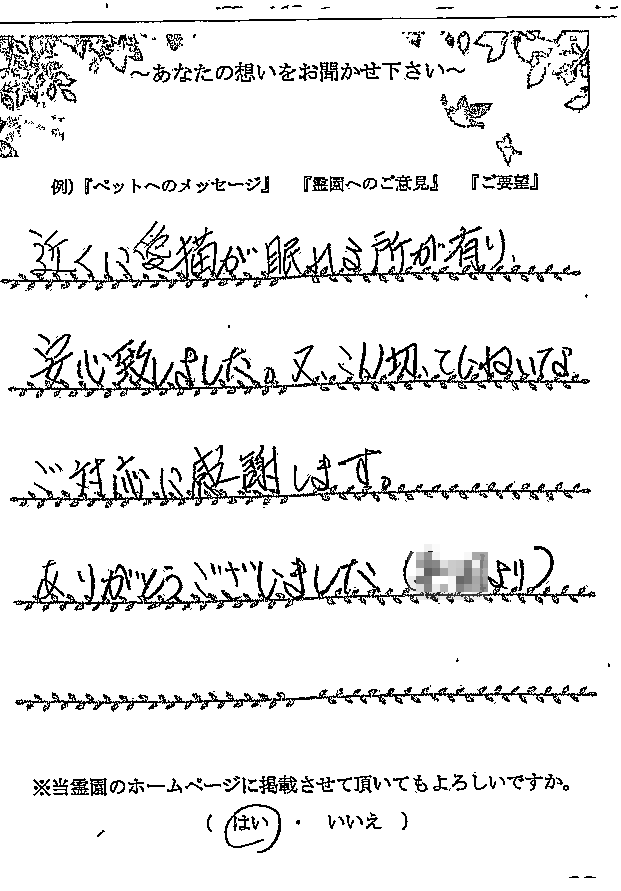 ～あなたの想いをお聞かせ下さい～
例）『ペットへのメッセージ』　『霊園へのご意見』　『ご要望』
近くに愛猫が眠れる所が有り、
安心致しました。又、こん切、ていねいな
ご対応に感謝します。
ありがとうございました（より）
※当霊園のホームページに掲載させて頂いてもよろしいですか。
（ はい ・ いいえ ）